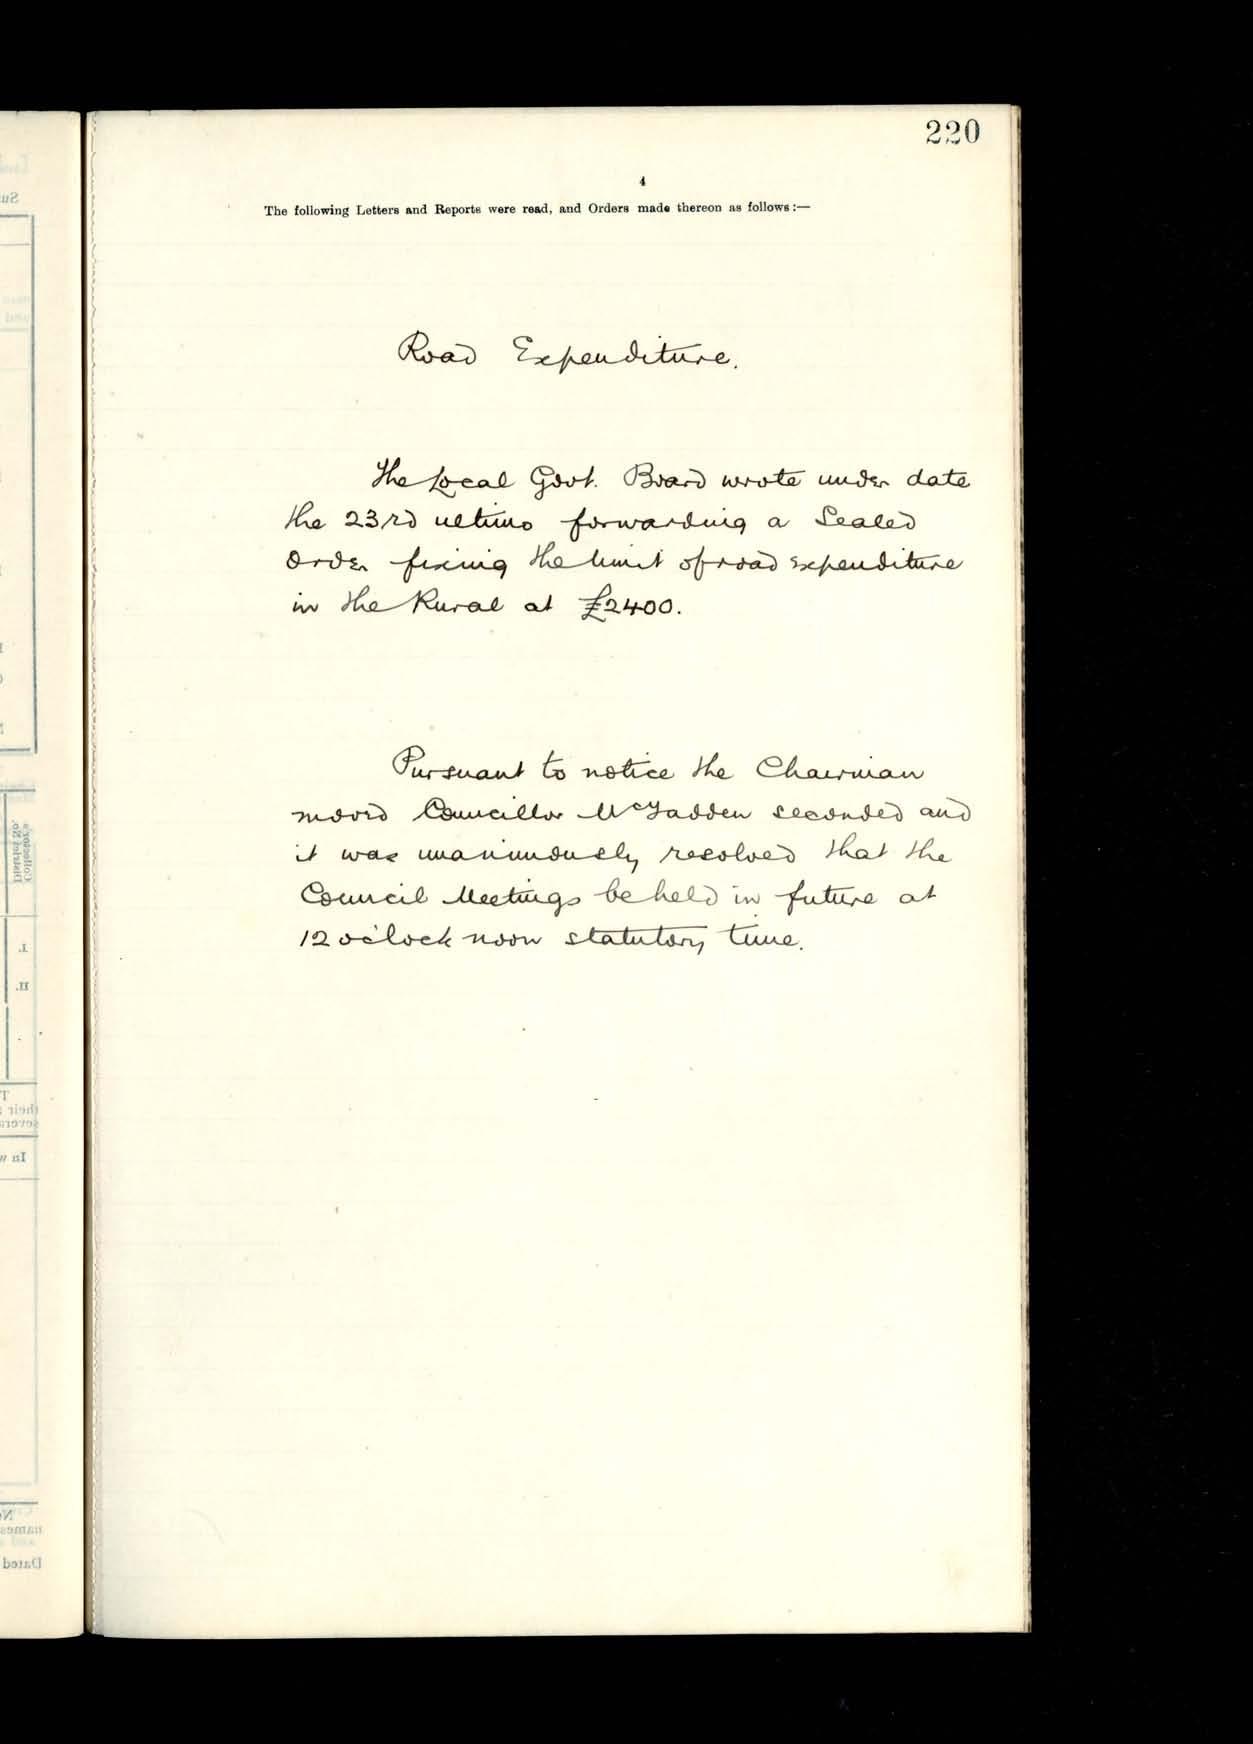 220
4
The following Letters and Reports were read, and Orders made thereon as follows:—
Road Expenditure.
The Local Govt. Board wrote under date
the 23rd ultimo forwarding a Sealed
Order fixing the limit of road expenditure
in the Rural at £2400.
Pursuant to notice the Chairman
moved Councillor McFadden seconded and
it was unanimously resolved that the
Council Meetings be held in future at
12 o'clock noon statutory time.